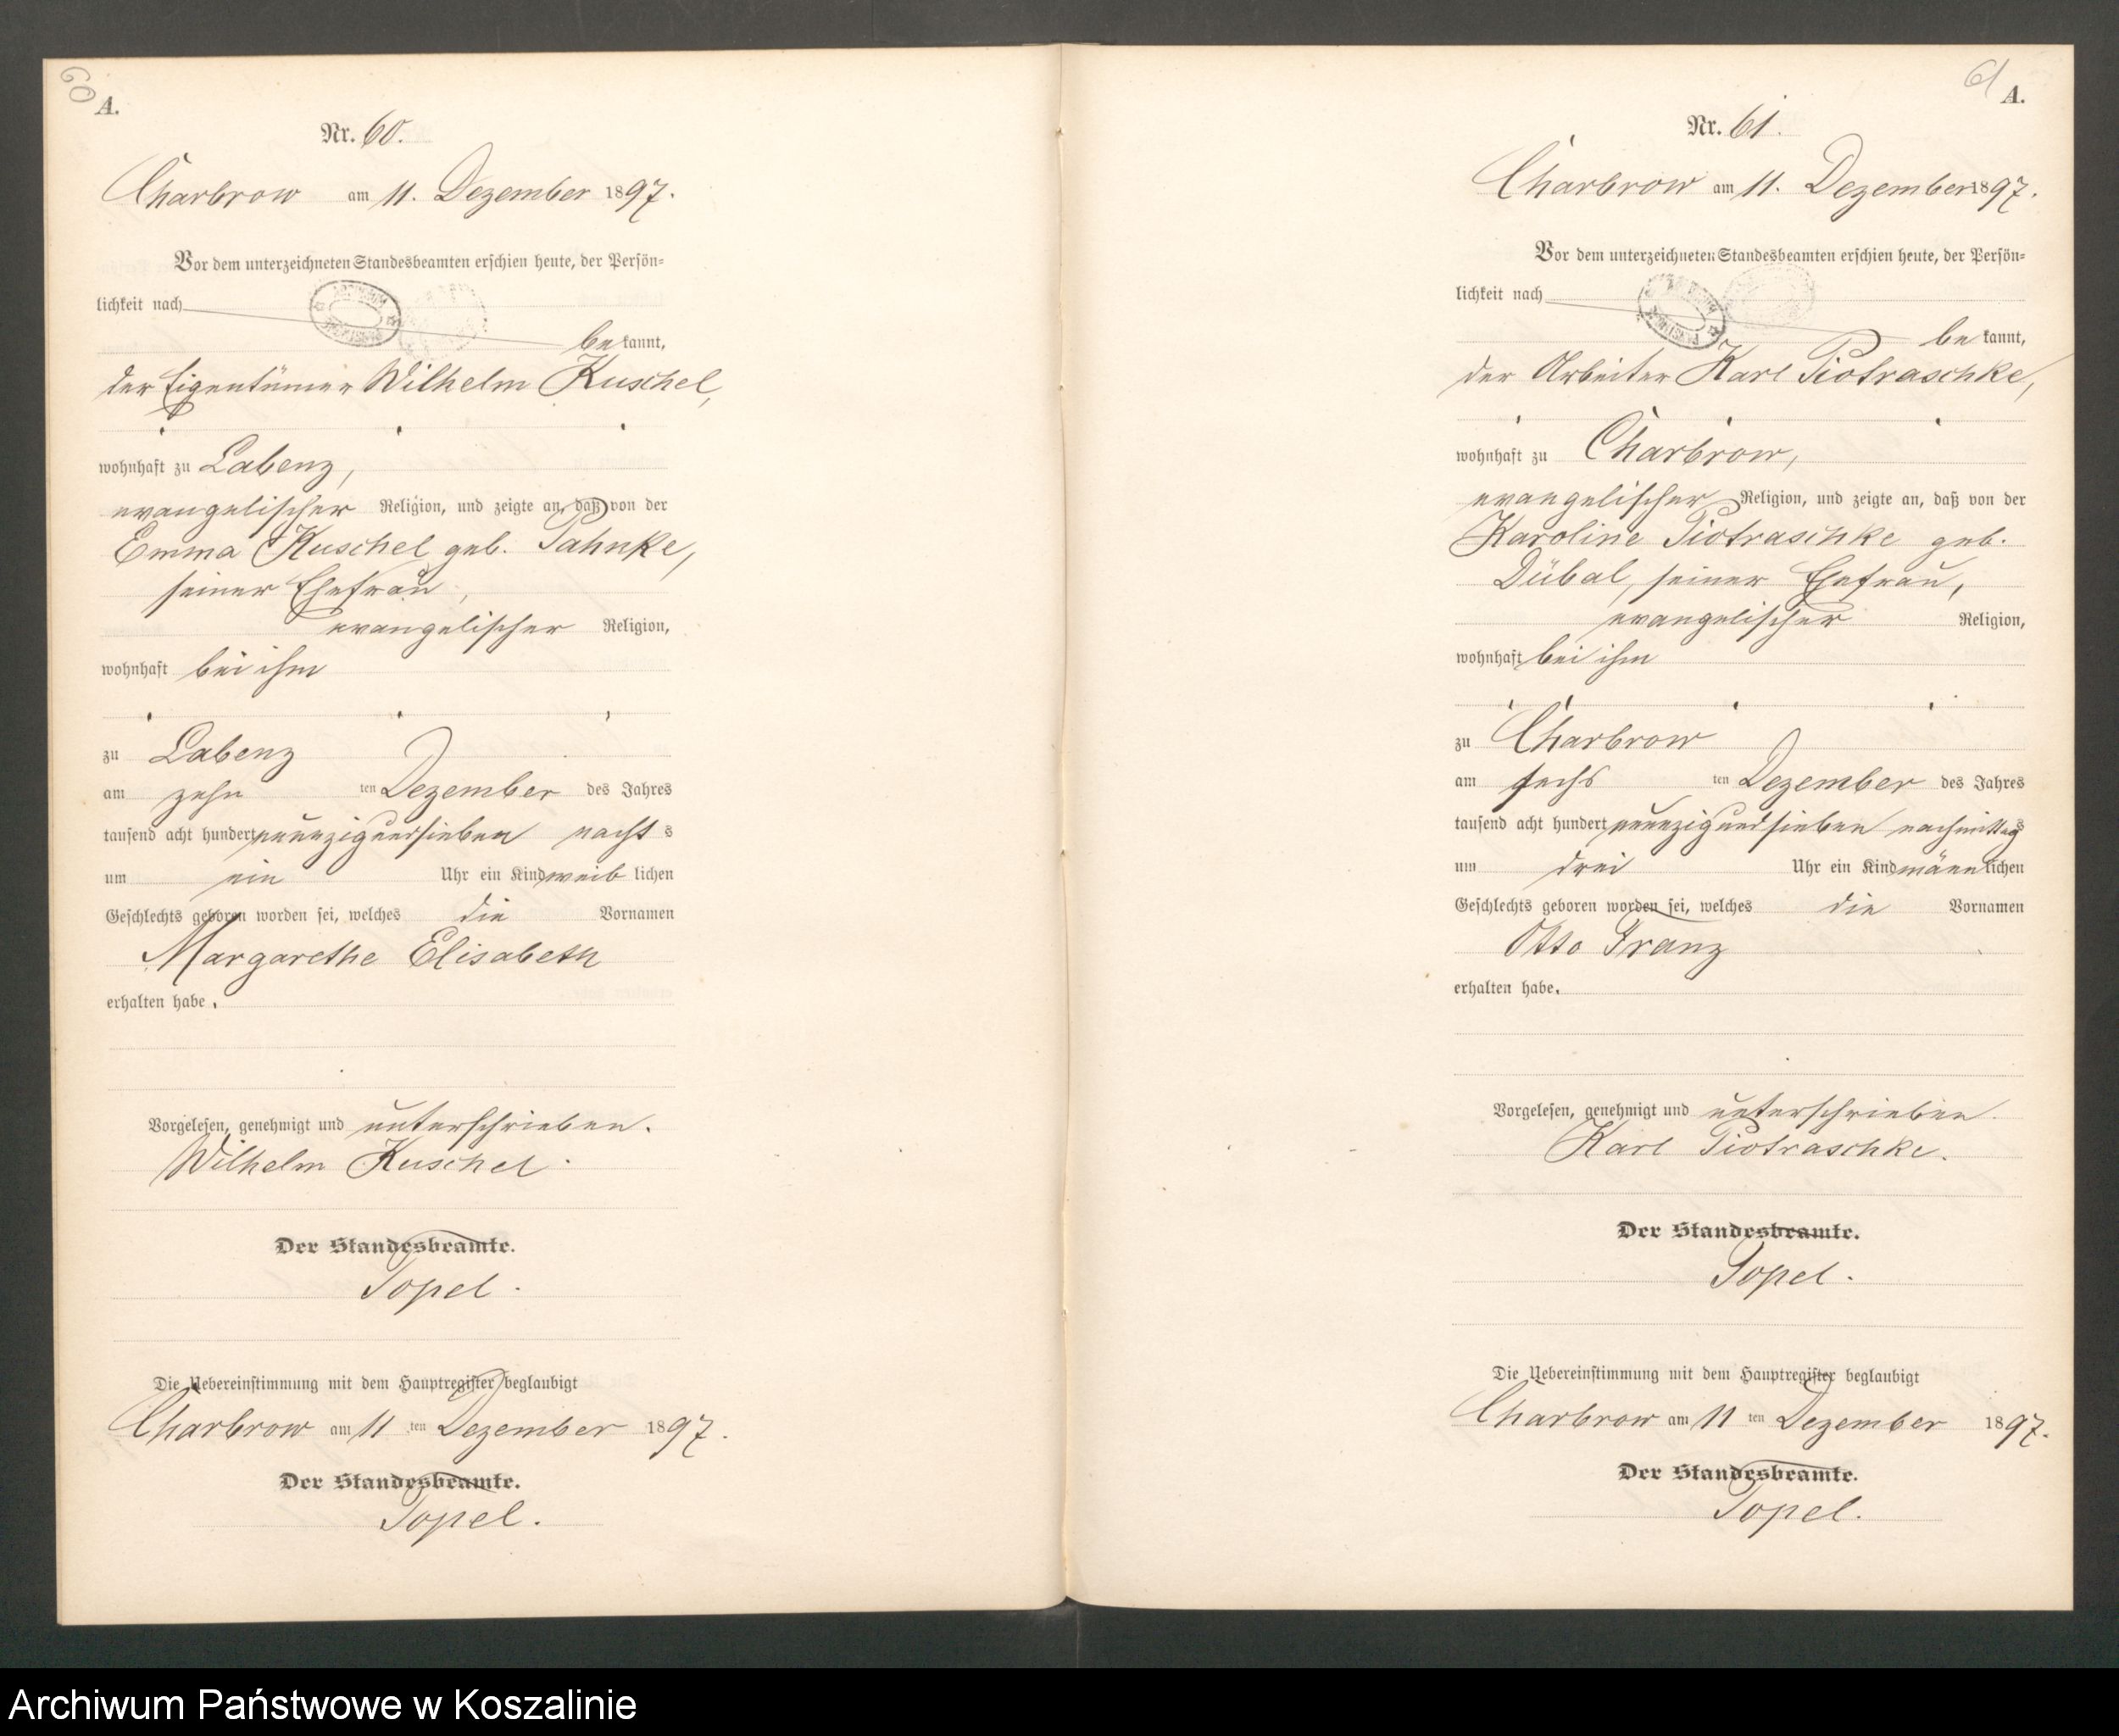 60
A.
Nr. 60.
Charbrow am 11. Dezember 1897.
Vor dem unterzeichneten Standesbeamten erschien heute, der Persön-
lichkeit nach
be kannt,
der Eigentümer Wilhelm Kuschel,
wohnhaft zu Labenz,
evangelischer Religion, und zeigte an, daß von der
Emma Kuschel geb. Pahnke,
seiner Ehefrau,
evangelischer Religion,
wohnhaft bei ihm
zu Labenz
am zehn ten Dezember des Jahres
tausend acht hundert neunzig und sieben nacht s
um ein Uhr ein Kind weib lichen
Geschlechts geboren worden sei, welches die Vornamen
Margarethe Elisabeth
erhalten habe.
Vorgelesen, genehmigt und unterschrieben.
Wilhelm Kuschel.
Der Standesbeamte.
Topel.
Die Uebereinstimmung mit dem Hauptregister beglaubigt
Charbrow am 11 ten Dezember 1897.
Der Standesbeamte.
Topel.
61
A.
Nr. 61.
Charbrow am 11. Dezember 1897.
Vor dem unterzeichneten Standesbeamten erschien heute, der Persön-
lichkeit nach
be kannt,
der Arbeiter Karl Piotraschke,
wohnhaft zu Charbrow,
evangelischer Religion, und zeigte an, daß von der
Karoline Piotraschke geb.
Dübal, seiner Ehefrau,
evangelischer Religion,
wohnhaft bei ihm
zu Charbrow
am sechs ten Dezember des Jahres
tausend acht hundert neunzig und sieben nachmittags
um drei Uhr ein Kind männ lichen
Geschlechts geboren worden sei, welches die Vornamen
Otto Franz
erhalten habe.
Vorgelesen, genehmigt und unterschrieben.
Karl Piotraschke.
Der Standesbeamte.
Topel.
Die Uebereinstimmung mit dem Hauptregister beglaubigt
Charbrow am 11 ten Dezember 1897.
Der Standesbeamte.
Topel.
Archiwum Państwowe w Koszalinie